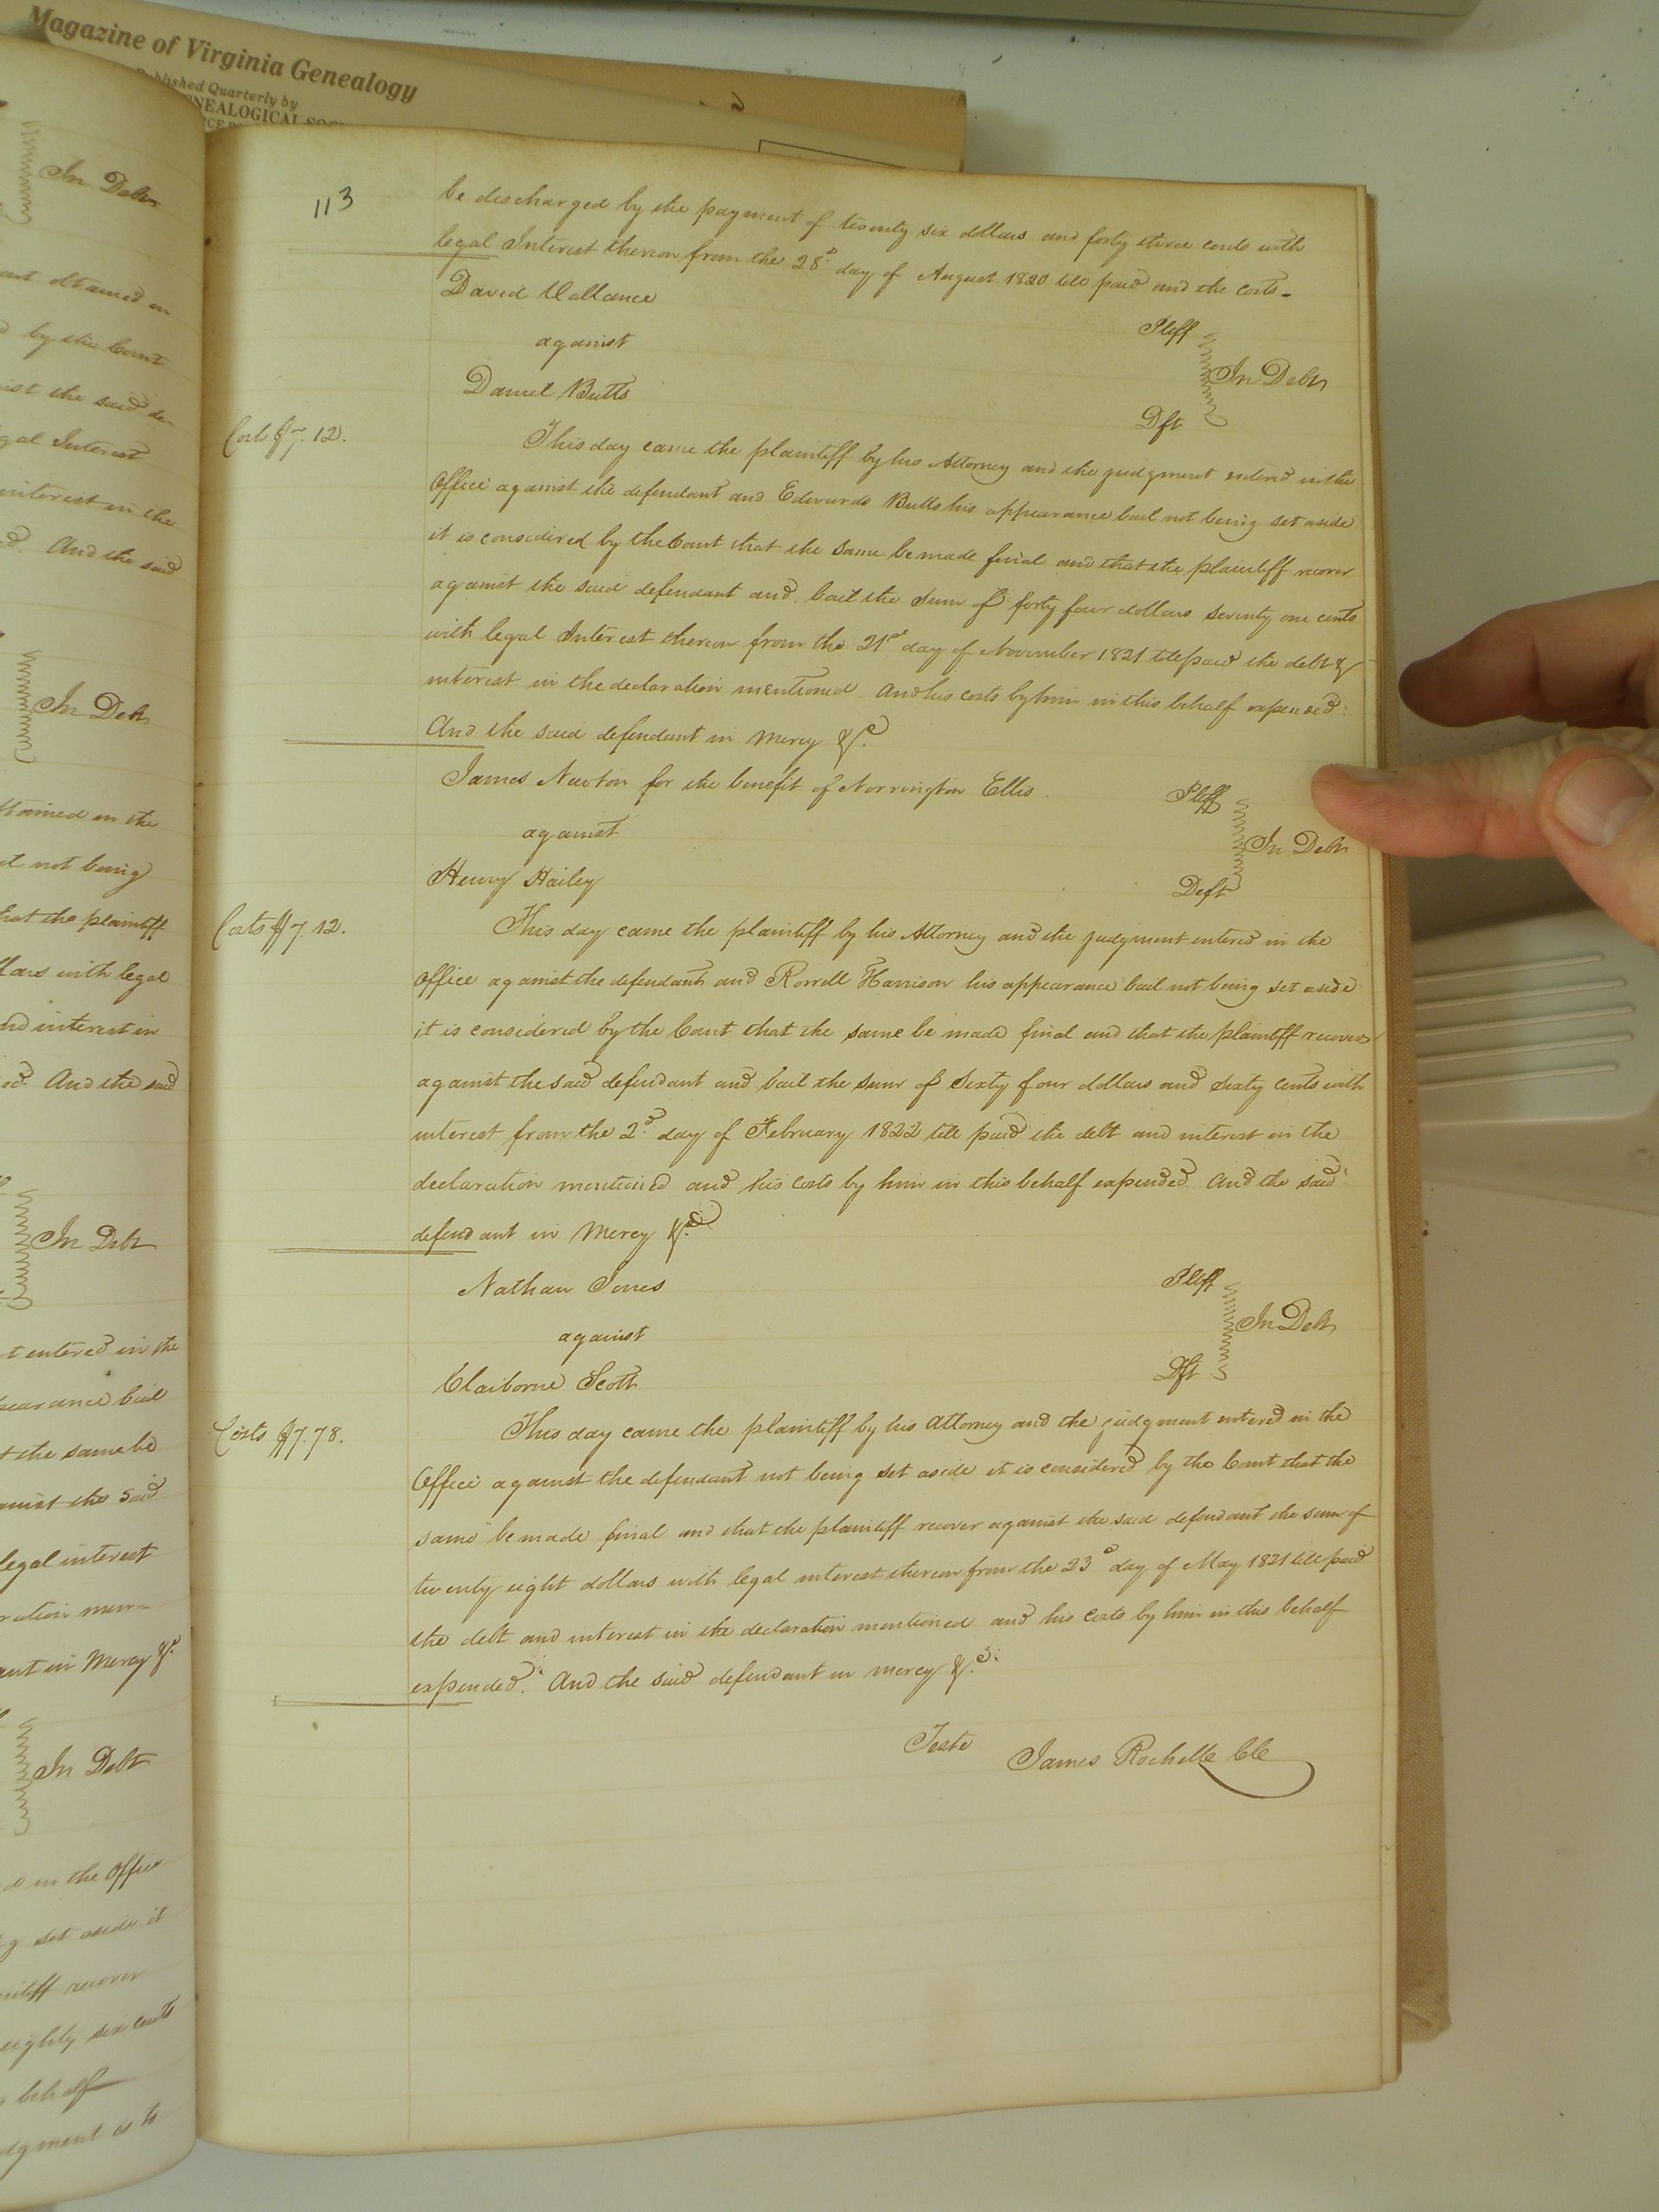 Magazine of Virginia Genealogy
Published Quarterly by
GENEALOGICAL
In Debt
obtained in
by the Court
the said de-
Interest
interest in the
And the said
In Debt
in the
not being
that the plaintiff
with legal
interest in
And the said
In Debt
entered in the
bail
the same be
the said
legal interest
men-
in Mercy &c.
In Debt
in the Office
set aside it
recover
eighty six cents
behalf
is to
113
be discharged by the payment of twenty six dollars and forty three cents with
legal Interest thereon from the 28th day of August 1820 till paid and the costs-
David Vallance
Pltff
against
In Debt
Daniel Butts
Dft
Costs $7.12.
This day came the plaintiff by his Attorney and the judgment entered in the
Office against the defendant and Edwards Butts his appearance bail not being set aside
it is considered by the Court that the same be made final and that the plaintiff recover
against the said defendant and bail the sum of forty four dollars seventy one cents
with legal Interest thereon from the 21st day of November 1821 till paid the debt &
interest in the declaration mentioned And his costs by him in this behalf expended.
And the said defendant in mercy &c.
James Newton for the benefit of Norrington Ellis
Pltff
against
In Debt
Henry Hailey
Deft
Costs $7.12.
This day came the plaintiff by his Attorney and the judgment entered in the
Office against the defendant and Harrison his appearance bail not being set aside
it is considered by the Court that the same be made final and that the plaintiff recover
against the said defendant and bail the sum of Sixty four dollars and sixty cents with
interest from the 2d day of February 1822 till paid the debt and interest in the
declaration mentioned and his costs by him in this behalf expended And the said
defendant in Mercy &c.
Nathan Jones
Pltff
against
In Debt
Claiborne Scott
Dft
Costs $7.78.
This day came the plaintiff by his Attorney and the judgment entered in the
Office against the defendant not being set aside it is considered by the Court that the
same be made final and that the plaintiff recover against the said defendant the sum of
twenty eight dollars with legal interest thereon from the 23d day of May 1821 till paid
the debt and interest in the declaration mentioned and his costs by him in this behalf
expended. And the said defendant in mercy &c.
Teste
James Rochelle Clk